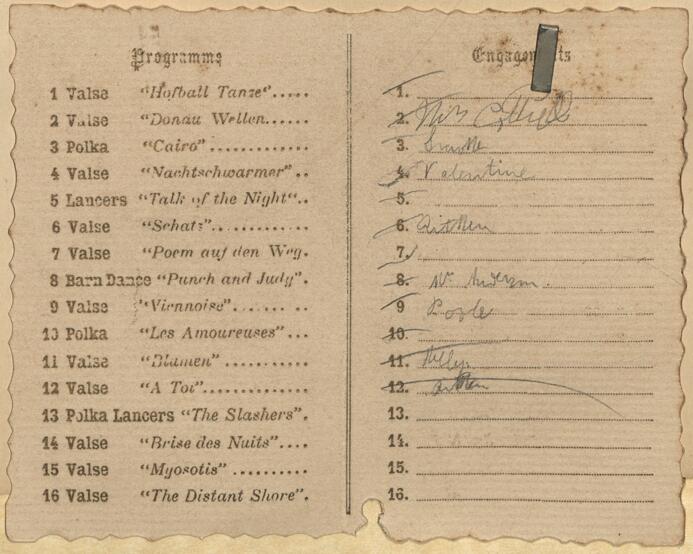 Programme
1 Valse "Hofball Tanze".....
2 Valse "Donau Wellen.....
3 Polka "Cairo"...........
4 Valse "Nachtschwarmer"..
5 Lancers "Talk of the Night"..
6 Valse "Schatz"............
7 Valse "Poem auf den Weg.
8 Barn Dance "Punch and Judy".
9 Valse "Viennoise".........
10 Polka "Les Amoureuses"...
11 Valse "Blumen" ..........
12 Valse "A Toi".............
13 Polka Lancers "The Slashers".
14 Valse "Brise des Nuits"....
15 Valse "Myosotis" .........
16 Valse "The Distant Shore".
Engagements
1.
2.
3.
4. Valentine
5.
6. Aitken
7.
8. Mr Anderson.
9
10.
11.
12. Aitken
13.
14.
15.
16.